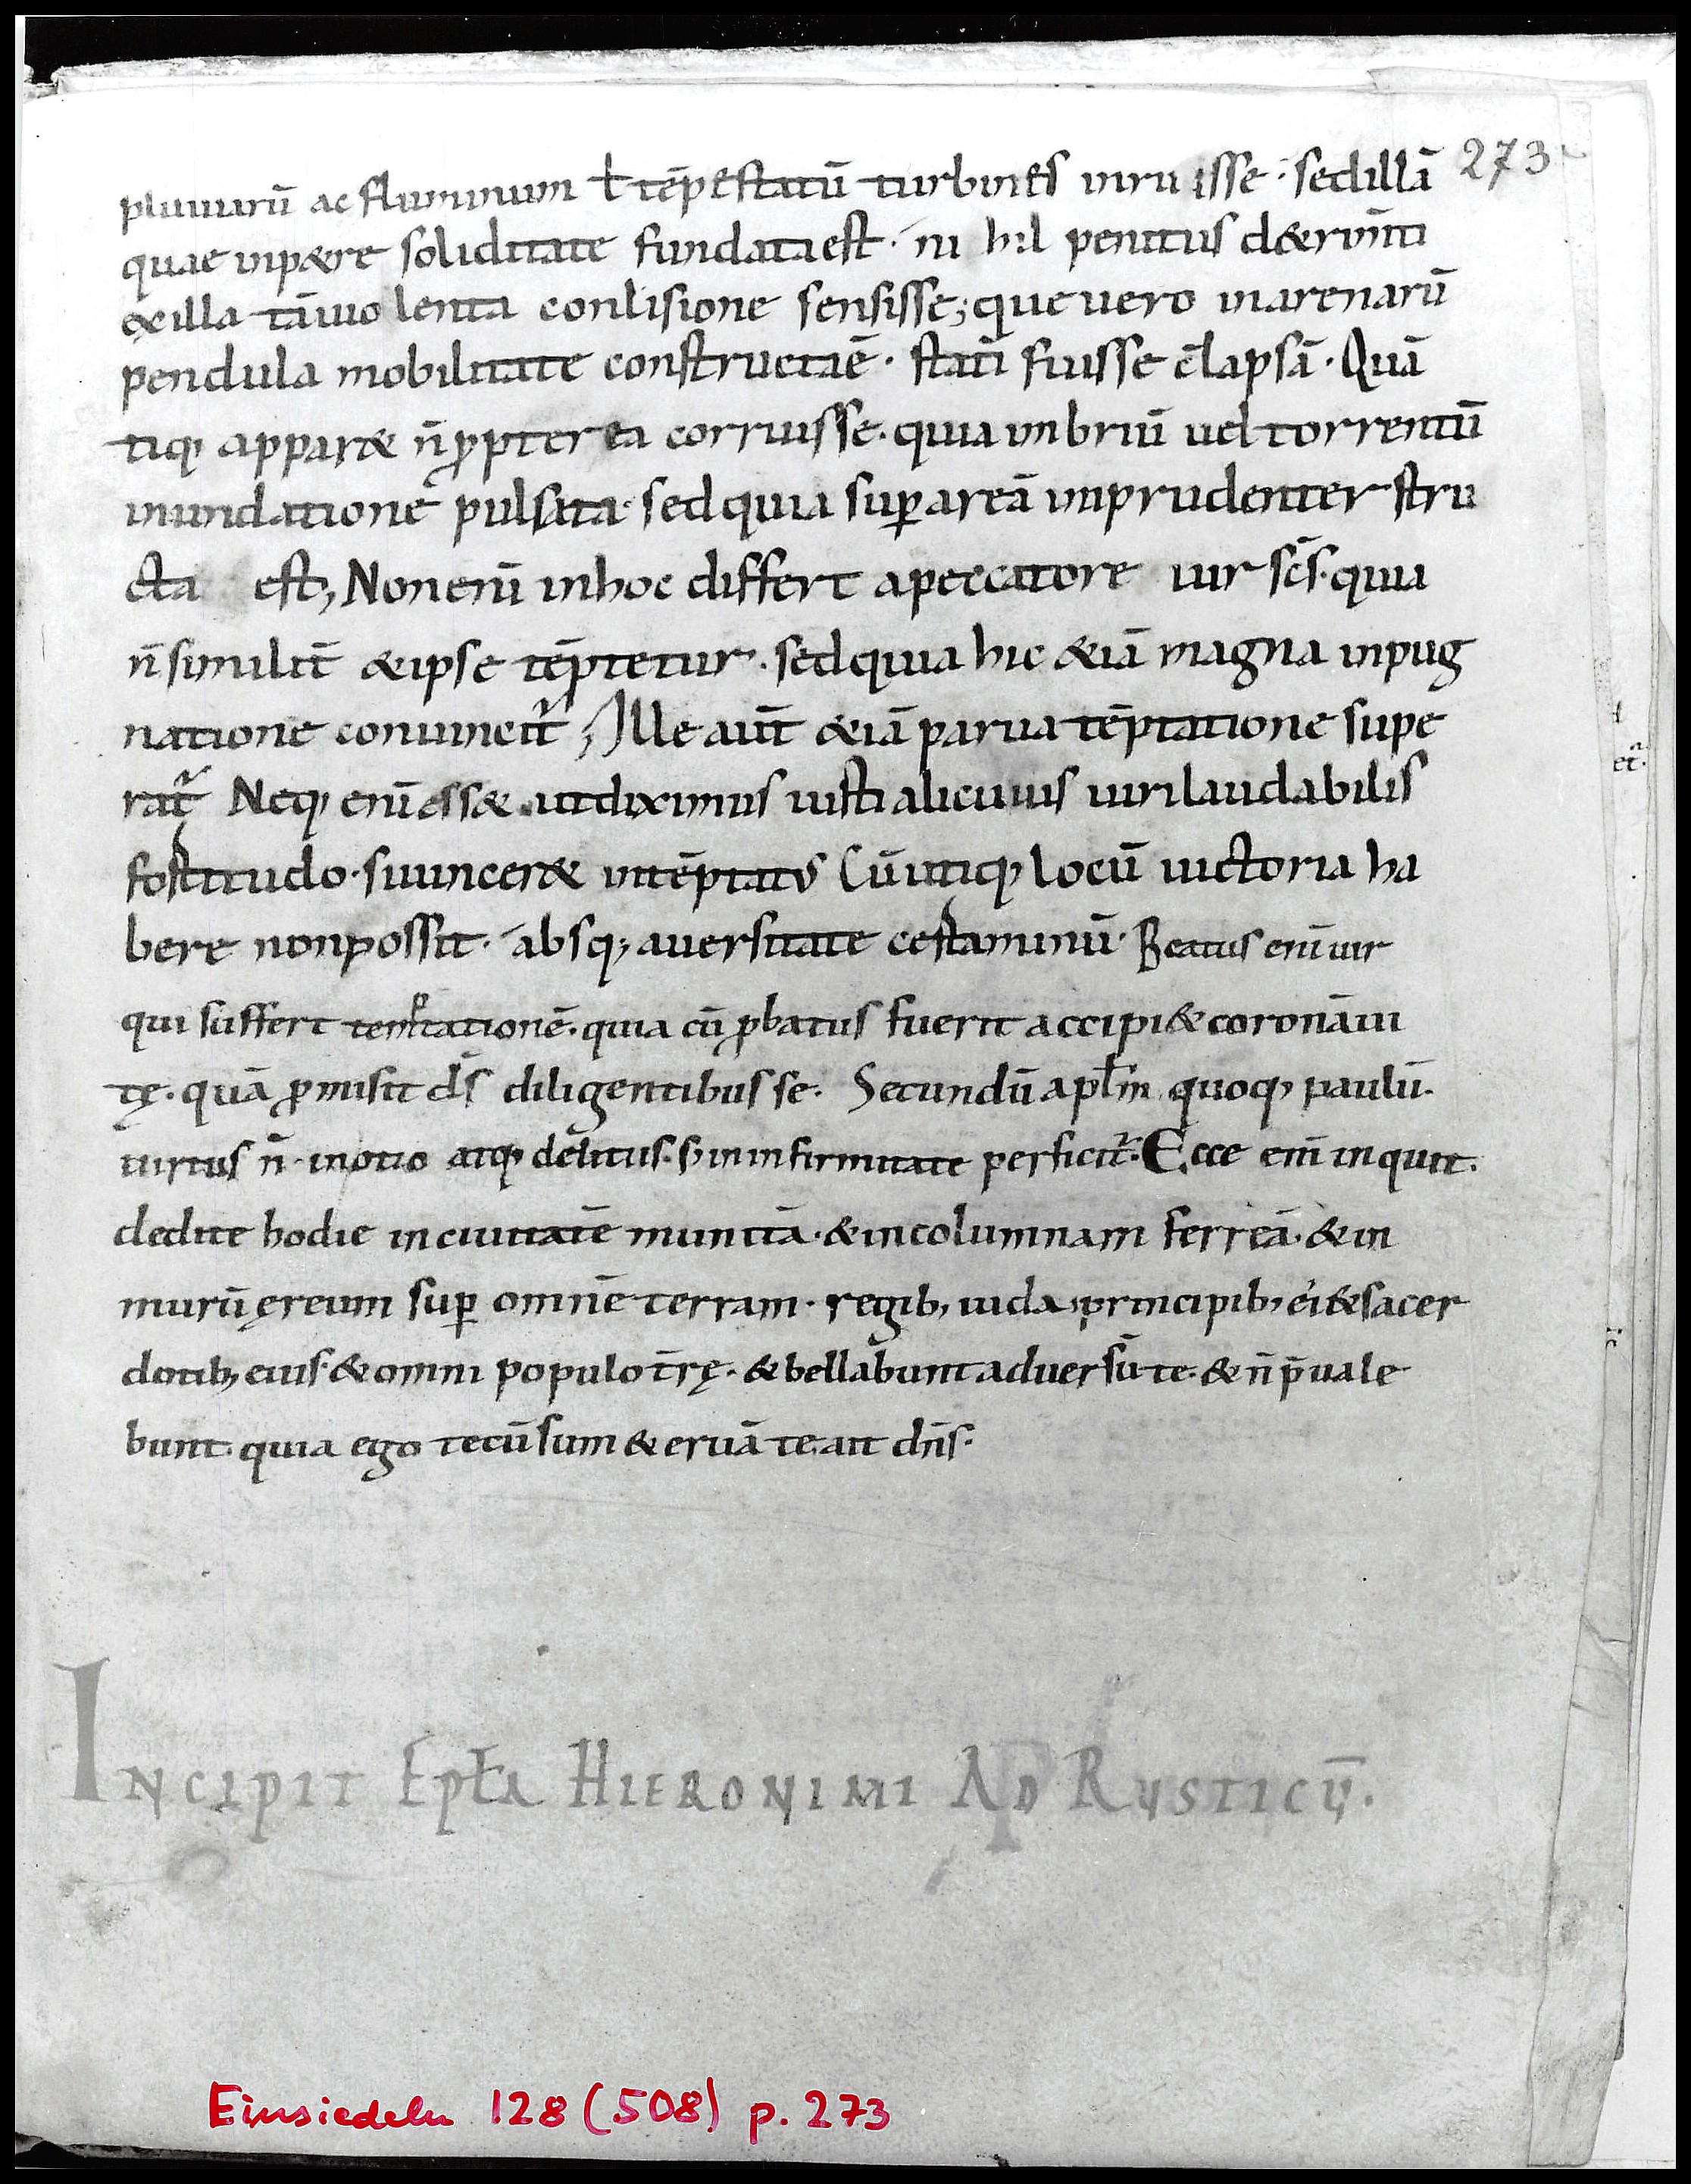 273
pluuiarū ac fluminum ł tēpestatū turbines inruisse · sedillā
quae inp&re soliditate fundataest · ni hil penitus d&rimti
exilla tāuio lenta conlisione sensisse; que uero inarenarū
pendula mobilitate constructaē · statī fuisse elapsā · Quā
tiq, appar& n̄ ꝓpter ea corruisse · quia imbriū uel torrentū
inundatione pulsata · sedquia suꝑ areā inprudenter stru
cta est, Nonenī inhoc differt apeccatore uir scs̄ · quia
n̄ similit̄ &ipse tēptetur · sedquia hic &iā magna inpug
natione conuincit᷑; Ille aut̄ &iā parua tēptatione supe
rat᷑ Neq, enī ess& · utdiximus iusti alicuius uirilaudabilis
fortitudo · siuincer& intēptatus Cūutiq, locū uictoria ha
bere nonpossit · absq; auersitate certaminū · Beatus enī uir
qui suffert temptationē · quia cū ꝓbatus fuerit accipi& coronā ui
tę · quā ꝓmisit ds̄ diligentibus se · Secundū apłm quoq, paulū ·
uirtus n̄ · inotio atq, delitiis · s; ininfirmitate perficit᷑ · Ecce enī inquit ·
dedite hodie inciuitatē munitā · &incolumnam ferreā · &in
murū ęreum suꝑ omnē terram · regib, iuda principib, ei &sacer
dotib, eius · &omni populo tr̄ę · &bellabunt aduersū te · &n̄ p̄uale
bunt · quia ego tecū sum &eruā te ait dn̄s ·
INCIPIT EPŁA HIERONIMI AD RUSTICŪ.
Einsiedeln 128 (508) p. 273